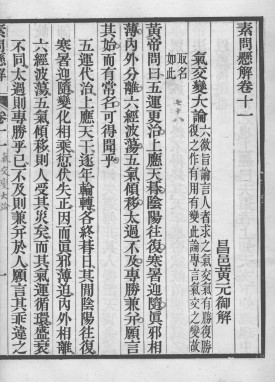 素問懸解卷十一
昌邑黃元御解
氣交變大論
六微旨論言人者求之氣交氣有勝復勝
復之作有用有變此論專言氣交之變故
取名
如此
七十八
黃帝問曰五運更治上應天朞陰陽往復寒暑迎隨眞邪相
薄內外分離六經波蕩五氣傾移太過不及專勝兼幷願言
其始而有常名可得聞乎
五運代治上應天干逐年輪轉各終朞日其間陰陽往復
寒暑迎隨變化相乘愆伏失正因而眞邪薄迫內外相離
六經波蕩五氣傾移則人受其災矣而其氣運循環盛衰
不同太過則專勝乎已不及則兼幷於人願言其乖違之
素問懸解
卷十一
氣交變大論
一